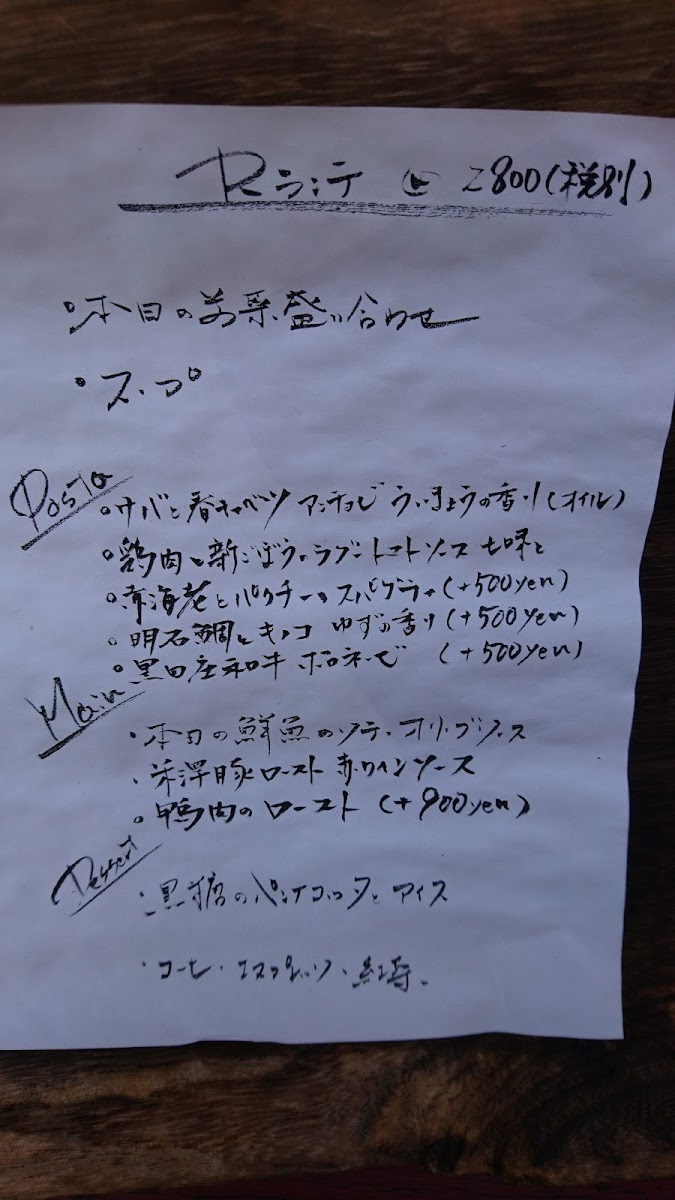 Rランチ ㊤ 2800(税別)
・本日の前菜盛り合わせ
・スープ
Pasta
・サバと春キャベツ アンチョビ ういきょうの香り(オイル)
・鶏肉と新ごぼうのラグー トマトソース 七味と
・赤海老とパクチーのスパゲティ(+500yen)
・明石鯛とキノコ ゆずの香り(+500yen)
・黒田庄和牛 ボロネーゼ (+500yen)
Main
・本日の鮮魚のソテー オリーブソース
・米澤豚ロースト 赤ワインソース
・鴨肉のロースト (+900yen)
Dessert
・黒糖のパンナコッタと アイス
・コーヒー・エスプレッソ・紅茶。